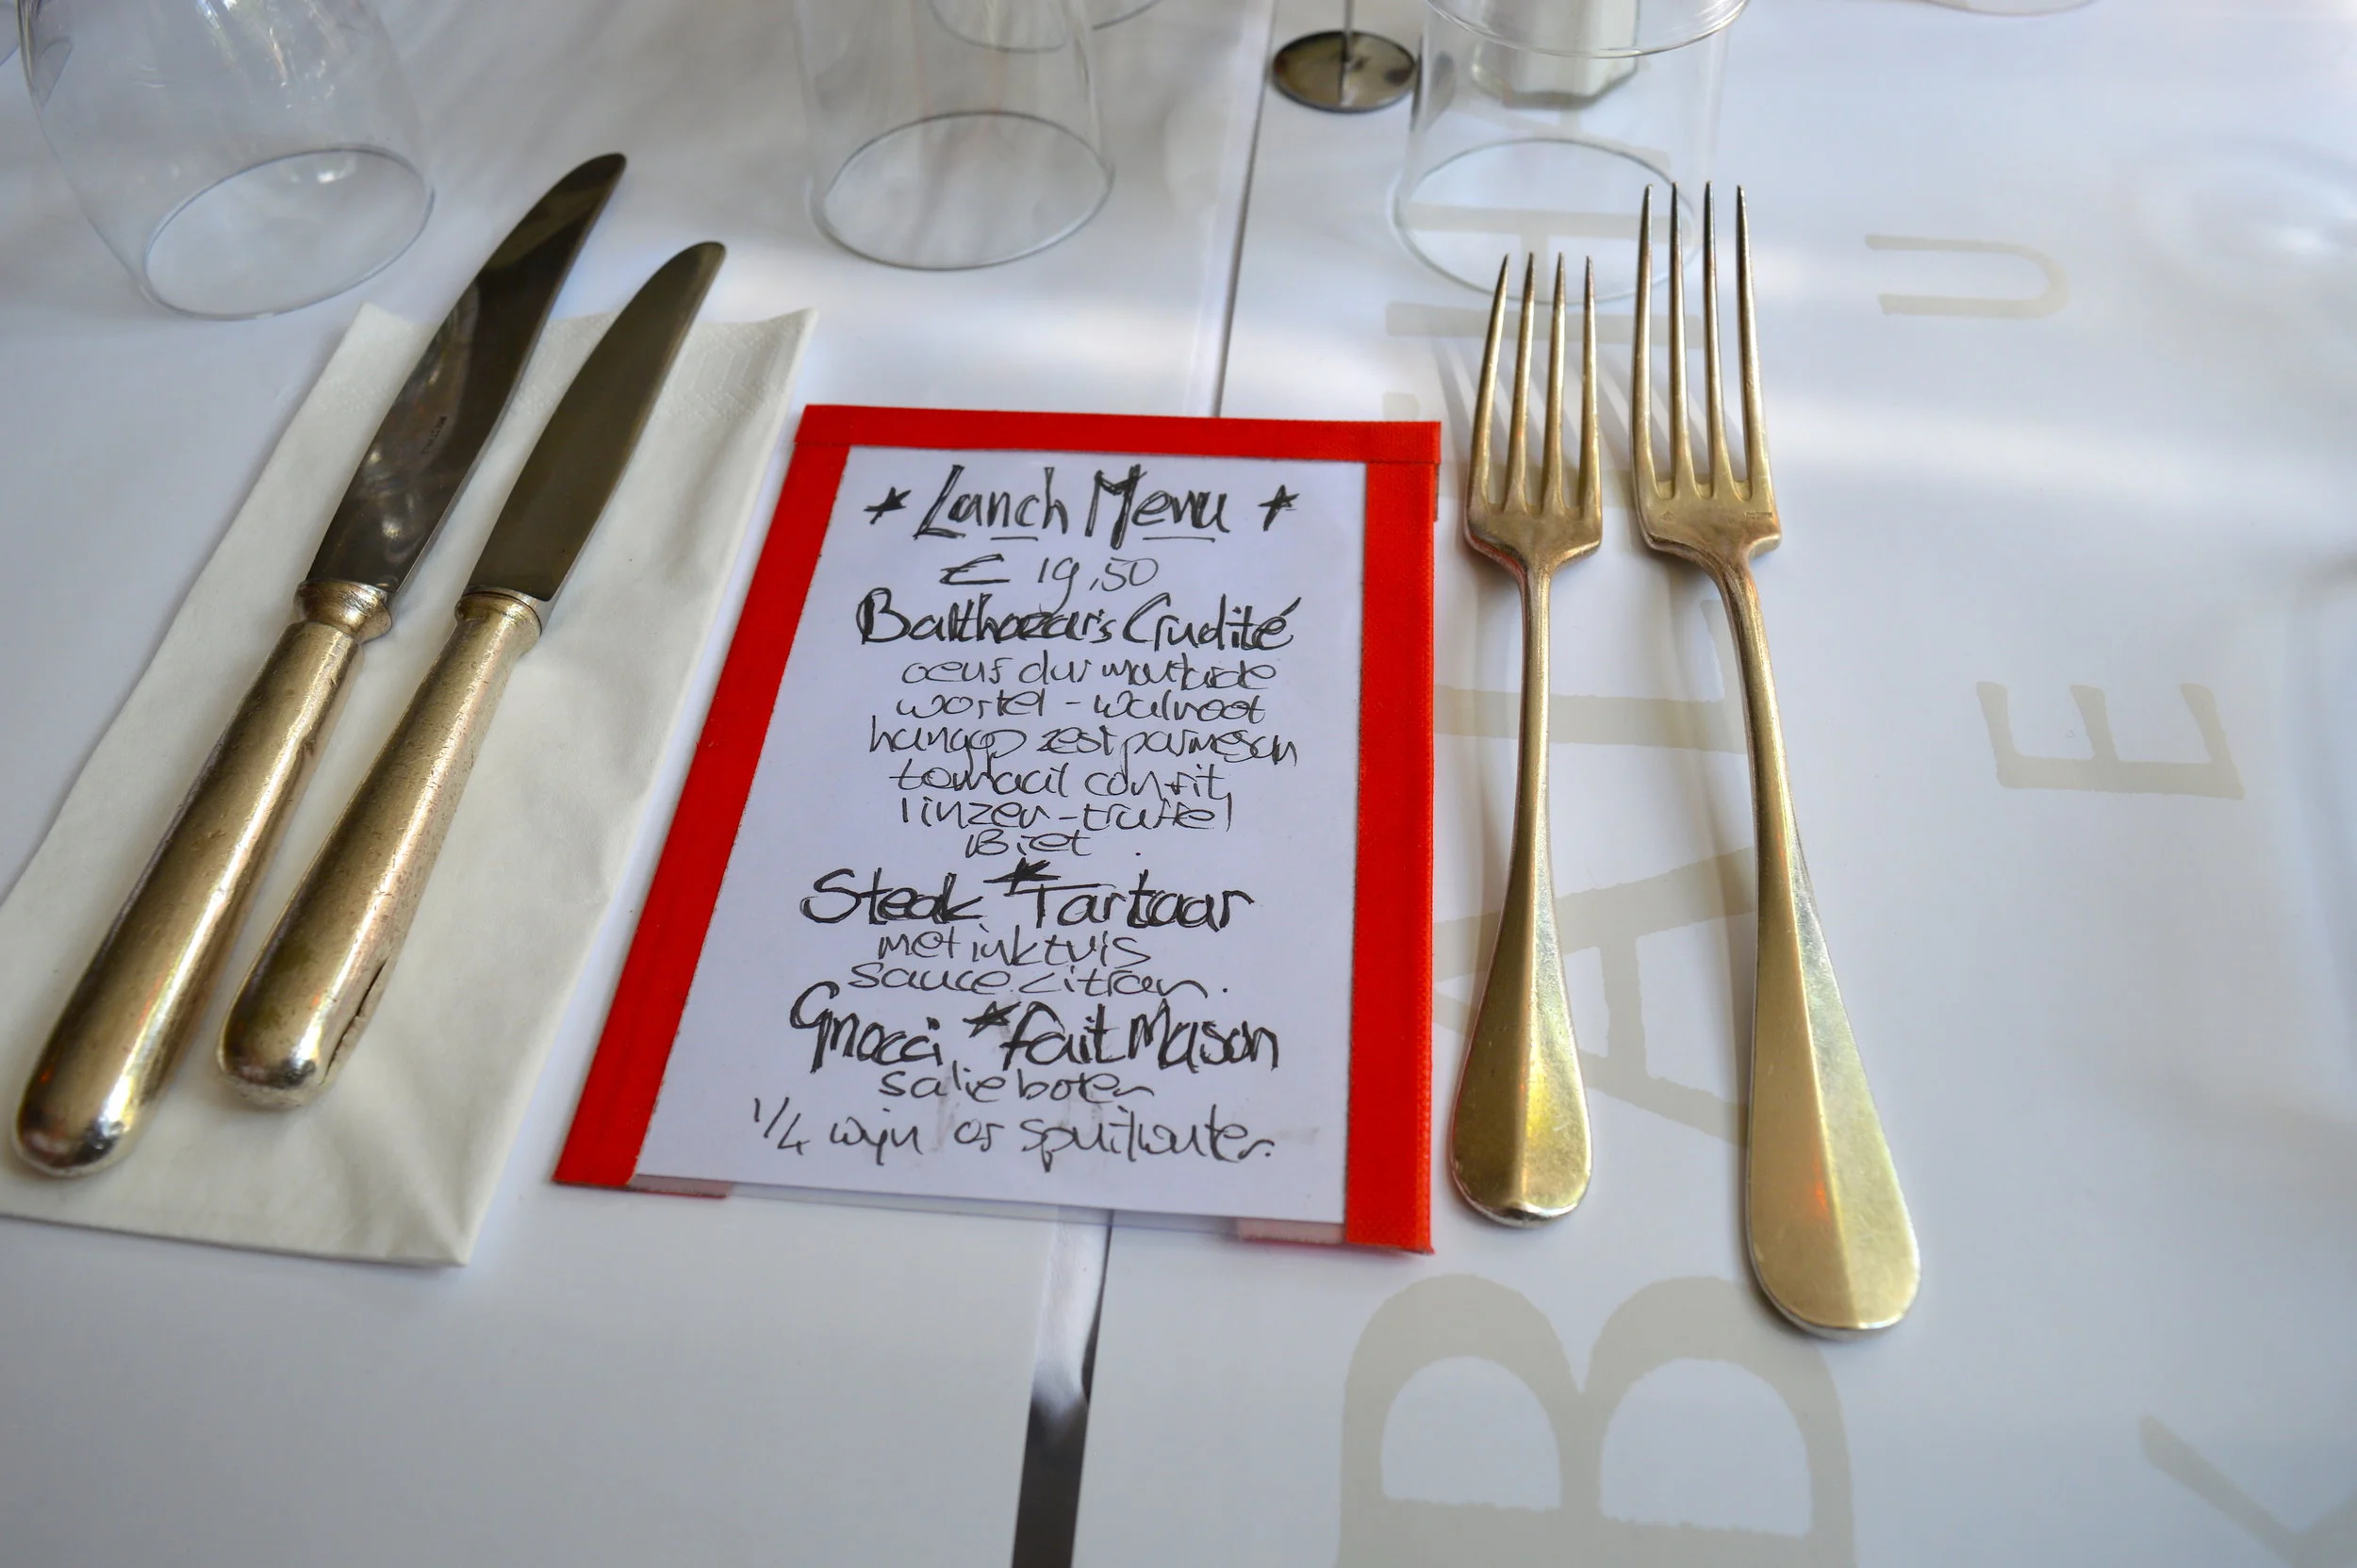 * Lunch Menu *
€ 19,50
Balthazar's Crudité
oeuf dur moutarde
wortel - walnoot
hangop zest parmesan
confit
linzen - truffel
Biet
*
Steak Tartaar
met inktvis
sauce citron.
*
Gnocci fait Mason
salie boter
1/4 wijn of spuitwater.
BALTHA
U
E